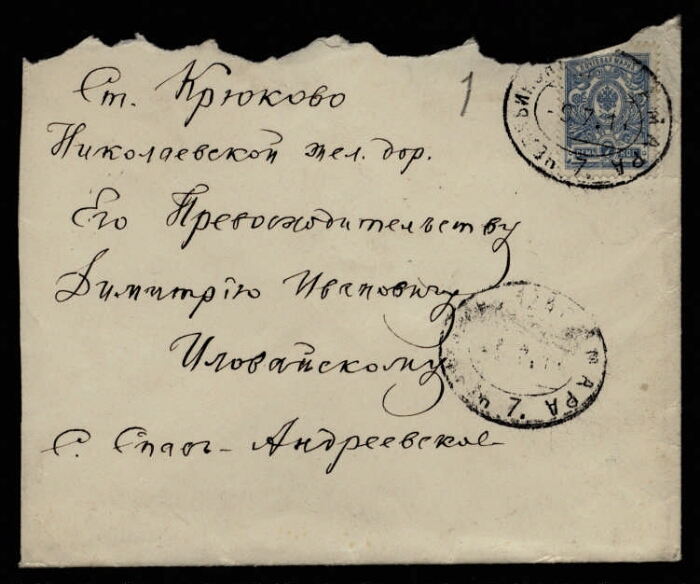 Ст. Крюково
1
Николаевской жел. дор.
Его Превосходительству
Димитрію Ивановичу
Иловайскому
С. Спасъ-Андреевское
ПОЧТОВАЯ МАРКА